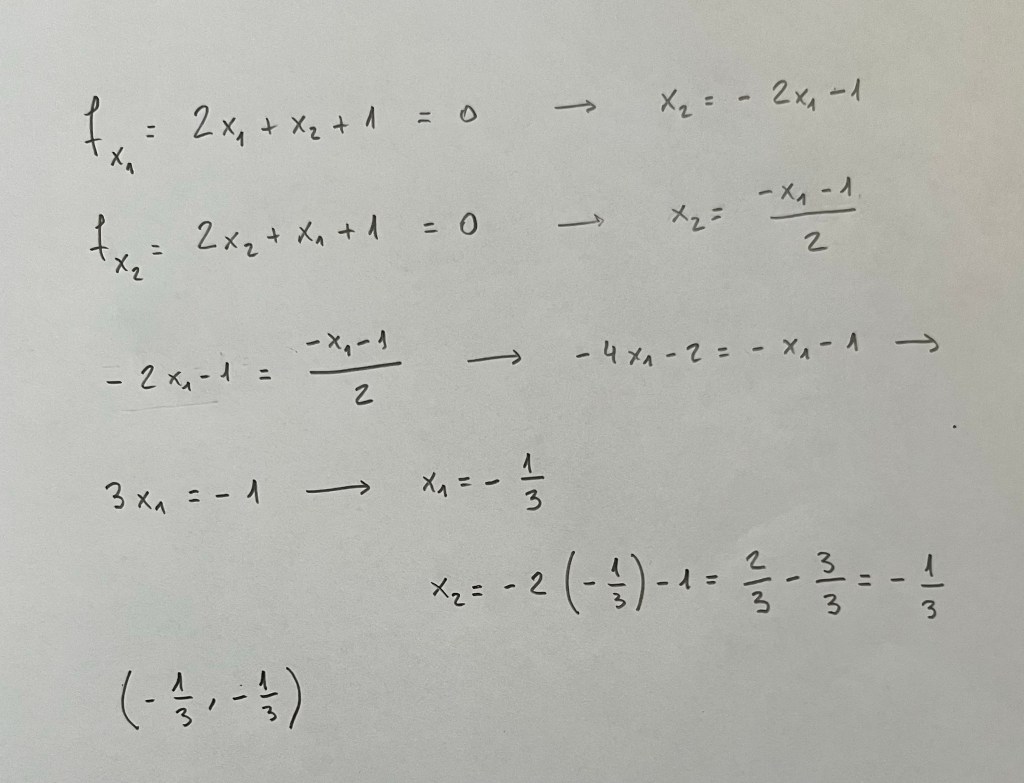 f_{x_1} = 2x_1 + x_2 + 1 = 0 → x_2 = - 2x_1 - 1
f_{x_2} = 2x_2 + x_1 + 1 = 0 → x_2 = \frac{-x_1 - 1}{2}
- 2x_1 - 1 = \frac{-x_1 - 1}{2} → - 4x_1 - 2 = - x_1 - 1 →
3x_1 = - 1 → x_1 = - \frac{1}{3}
x_2 = - 2 (- \frac{1}{3}) - 1 = \frac{2}{3} - \frac{3}{3} = - \frac{1}{3}
(- \frac{1}{3}, - \frac{1}{3})